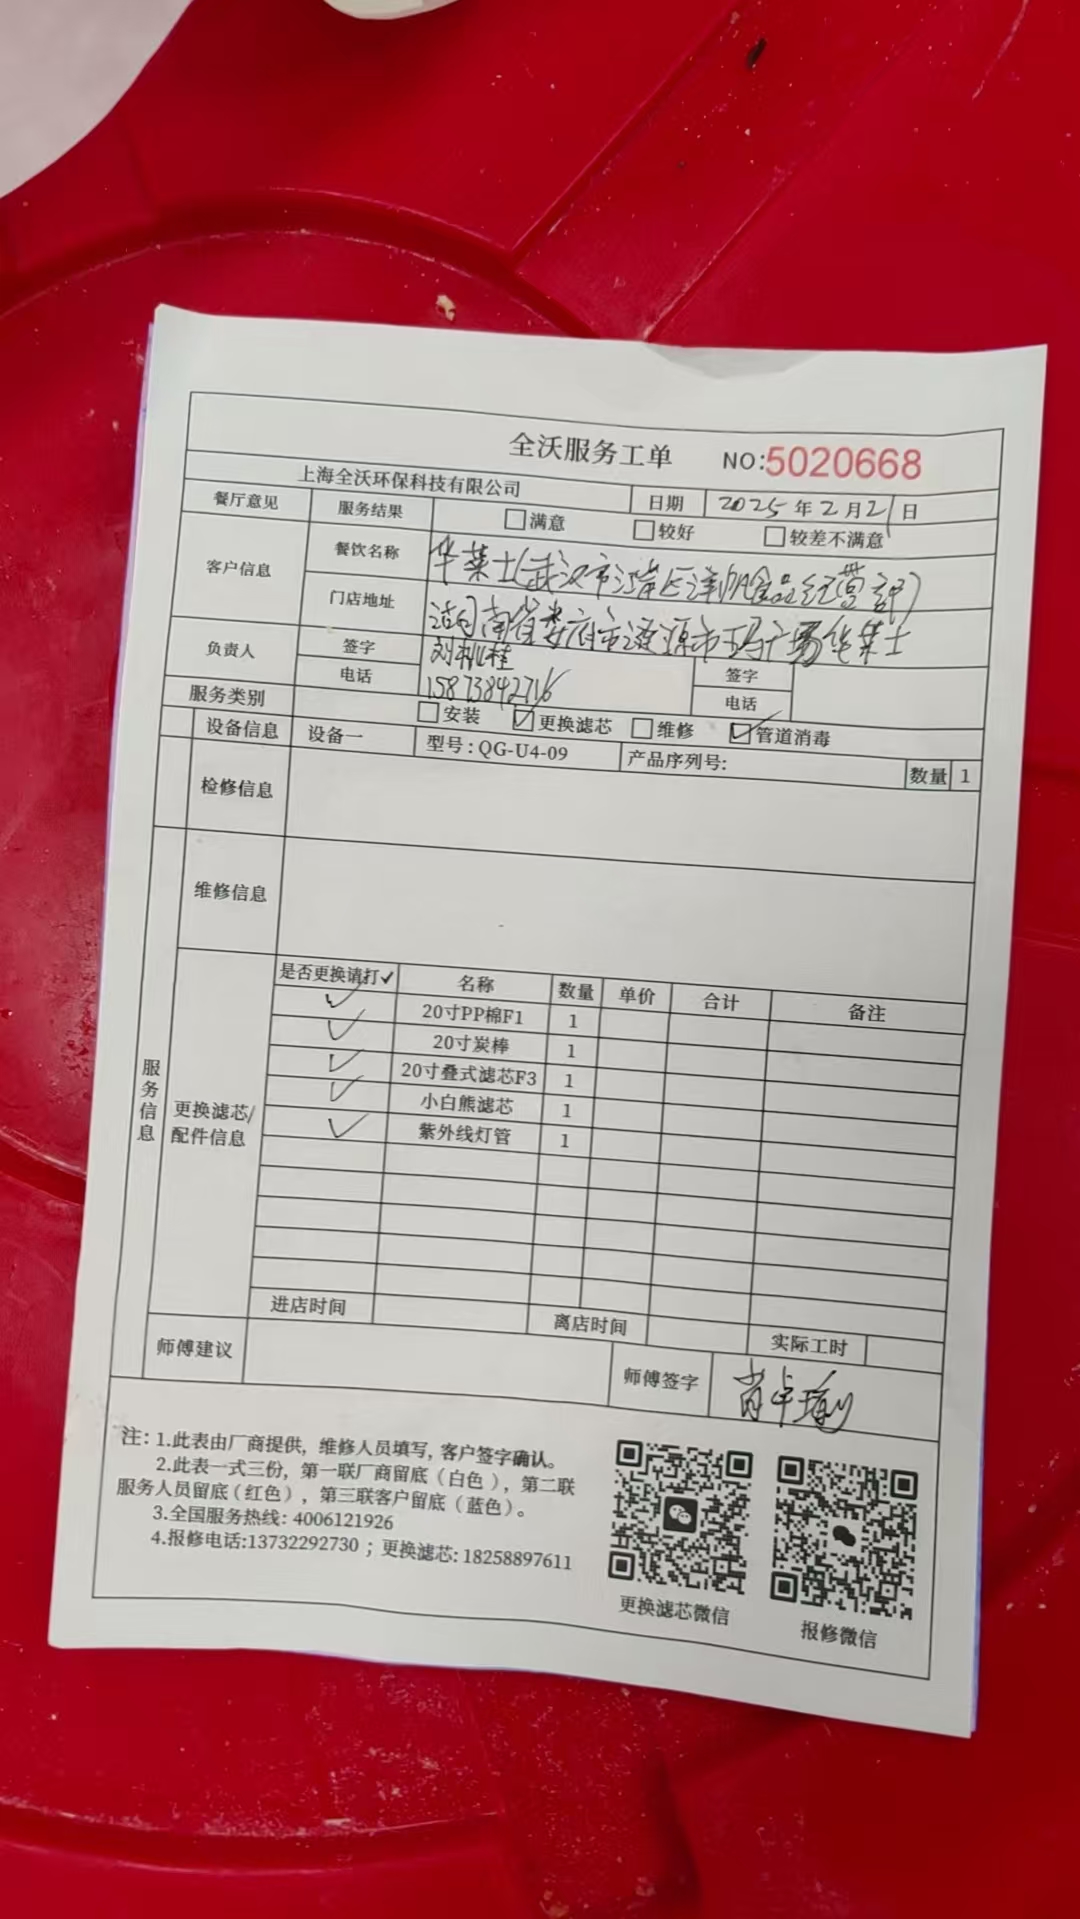 全沃服务工单 NO:5020668
上海全沃环保科技有限公司 日期 2025年2月21日
餐厅意见 服务结果 满意 较好 较差不满意
客户信息 餐饮名称 华莱士(武汉市江岸区 食品经营部)
门店地址 湖南省娄底市涟源市 广场华莱士
负责人 签字 刘 桂 签字
电话 15873842716 电话
服务类别 安装 更换滤芯 维修 管道消毒
设备信息 设备一 型号:QG-U4-09 产品序列号: 数量 1
检修信息
维修信息
服务信息
更换滤芯/
配件信息
是否更换请打✓ 名称 数量 单价 合计 备注
✓ 20寸PP棉F1 1
✓ 20寸炭棒 1
✓ 20寸叠式滤芯F3 1
✓ 小白熊滤芯 1
✓ 紫外线灯管 1
进店时间 离店时间 实际工时
师傅建议 师傅签字 肖卓瑜
注: 1.此表由厂商提供, 维修人员填写, 客户签字确认。
2.此表一式三份, 第一联厂商留底(白色), 第二联
服务人员留底(红色), 第三联客户留底(蓝色)。
3.全国服务热线: 4006121926
4.报修电话:13732292730 ; 更换滤芯: 18258897611
更换滤芯微信 报修微信